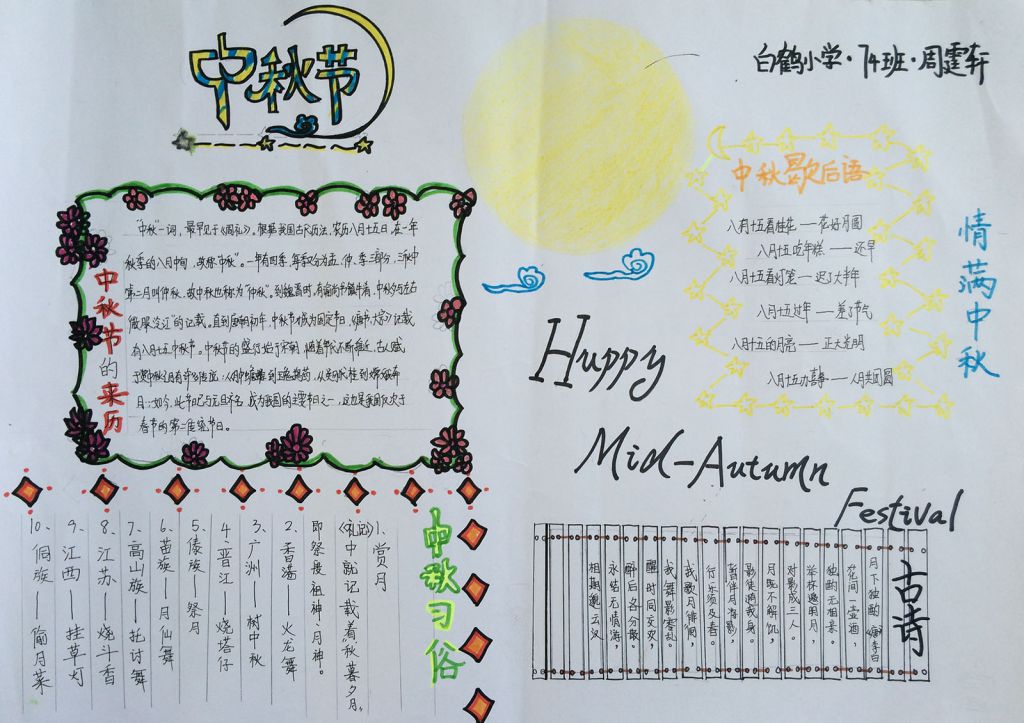 中秋节
白鹤小学·74班·周霆轩
中秋节的来历
"中秋"一词,最早见于《周礼》。根据我国古代历法,农历八月十五日,在一年
秋季的八月中旬,故称"中秋"。一年有四季,每季又分为孟、仲、季三部分,三秋中
第二月叫仲秋,故中秋也称为"仲秋"。到魏晋时,有"谕尚书镇牛渚,中秋夕与左右
微服泛江"的记载。直到唐朝初年,中秋节才成为固定节日。《唐书·太宗》记载
有八月十五中秋节。中秋节的盛行始于宋朝,随着年代不断推近,古人赋
于中秋月有许多:从月中蟾蜍到玉兔捣药,从吴刚伐桂到嫦娥奔
月;如今,此节日已与元旦齐名,成为我国的主要节日之一,这也是我国仅次于
春节的第二传统节日。
中秋歇后语
八月十五看桂花——花好月圆
八月十五吃年糕——还早
八月十五看灯笼——迟了大半年
八月十五过年——差了节气
八月十五的月亮——正大光明
八月十五办喜事——人月共团圆
情满中秋
Huppy
Mid-Autumn
Festival
中秋习俗
1、赏月
《礼记》中就记载着"秋暮夕月",
即祭拜祖神、月神。
2、香港——火龙舞
3、广洲——树中秋
4、晋江——烧塔仔
5、傣族——祭月
6、苗族——月仙舞
7、高山族——托讨舞
8、江苏——烧斗香
9、江西——挂草灯
10、侗族——偷月菜
古诗
月下独酌 唐李白
花间一壶酒,
独酌无相亲。
举杯邀明月,
对影成三人。
月既不解饮,
影徒随我身。
暂伴月将影,
行乐须及春。
我歌月徘徊,
我舞影零乱。
醒时同交欢,
醉后各分散。
永结无情游,
相期邈云汉